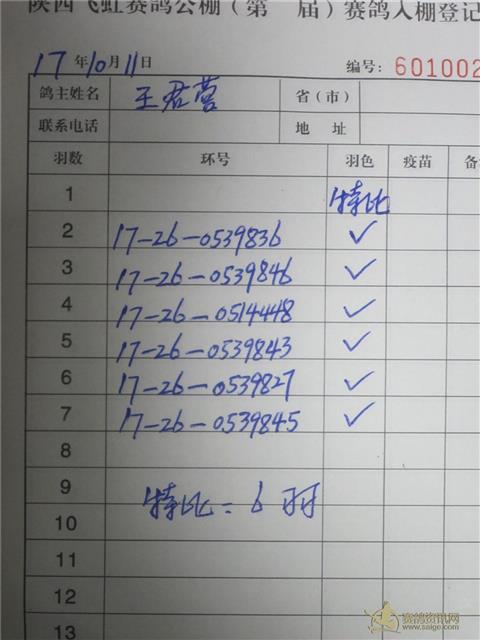 陕西飞虹赛鸽公棚（第 届）赛鸽入棚登记
17年10月11日 编号：601002
鸽主姓名 王君营 省（市）
联系电话 地 址
羽数 环号 羽色 疫苗 备
1 特比
2 17-26-0539836 ✓
3 17-26-0539846 ✓
4 17-26-0514448 ✓
5 17-26-0539843 ✓
6 17-26-0539827 ✓
7 17-26-0539845 ✓
8
9 特比=6羽
10
11
12
13
赛鸽资讯网
www.saige.com